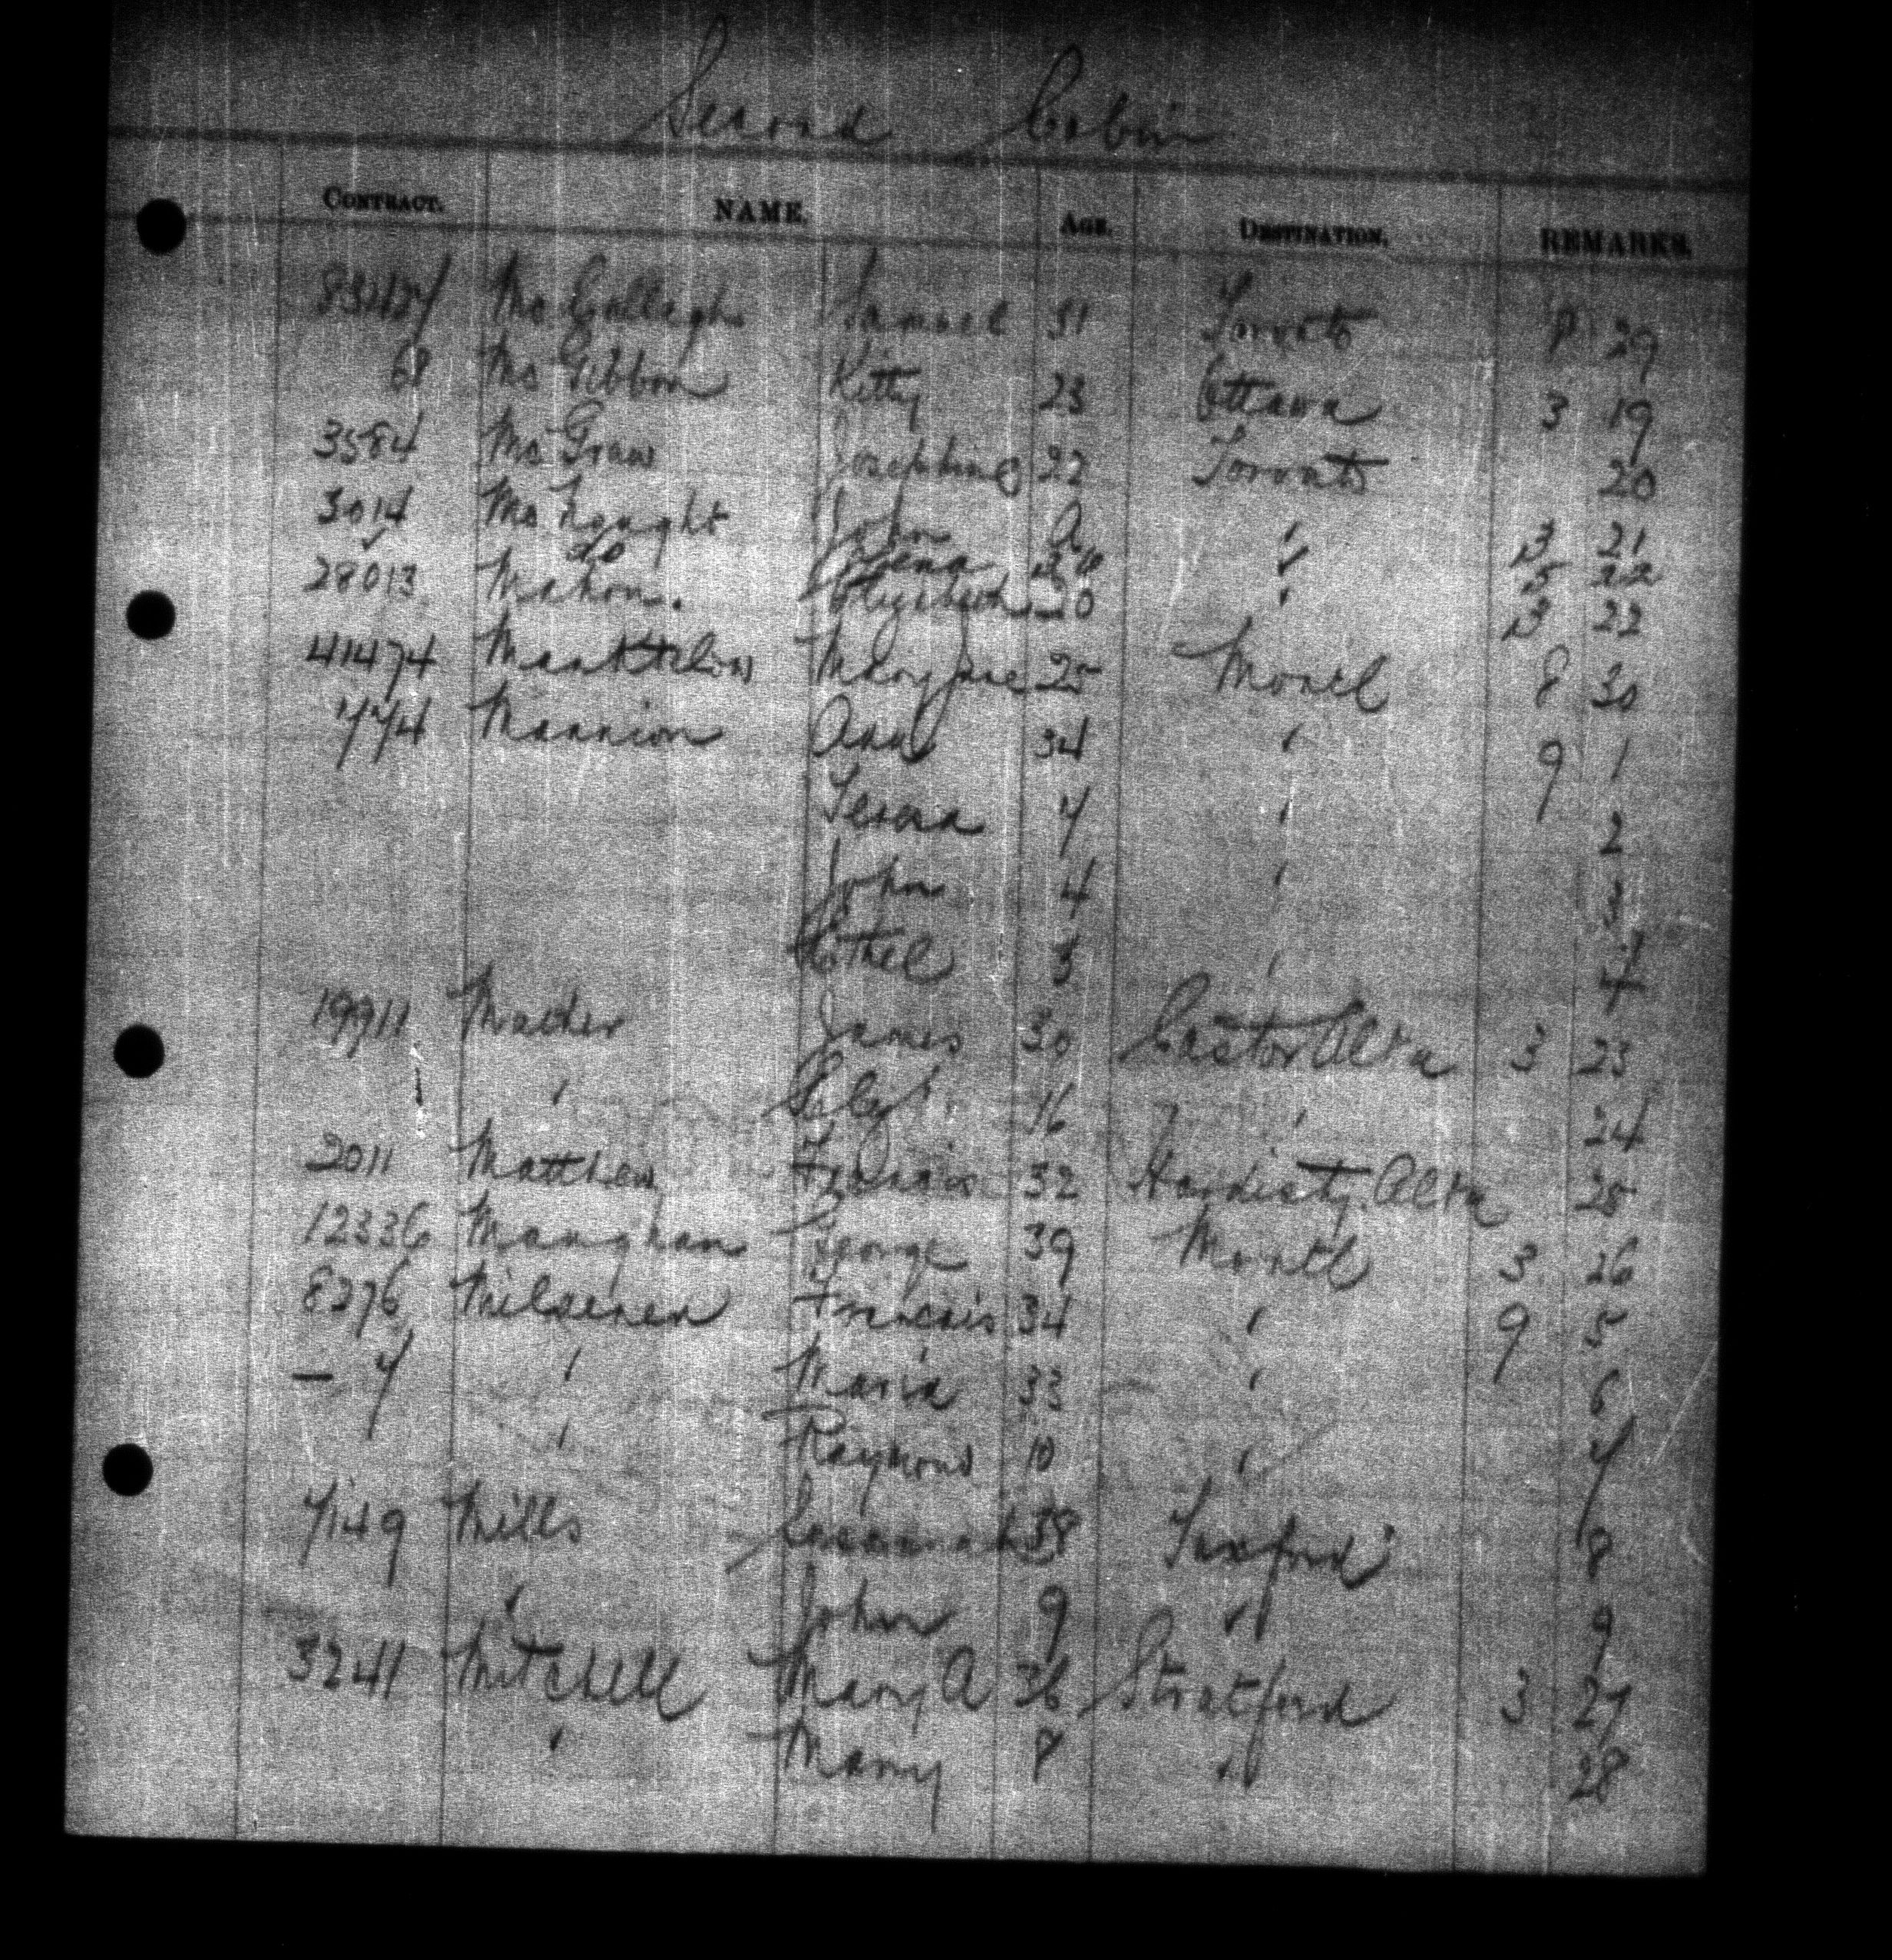 Second Cabin
CONTRACT. NAME. AGE. DESTINATION. REMARKS.
McGallagh Samuel 31 Toronto 8 29
68 McGibbon Kitty 23 Ottawa 3 19
3584 McGraw Josephine 22 Toronto 20
3014 John A " 3 21
do 22
28013 Mahon. Elizabeth 20 " 3 22
41474 Mary Jane 25 Montl 8 30
774 Mannion Ann 34 " 9 1
7 " 2
John 4 " 3
Ethel 3 " 4
19911 Mather James 30 Castor Alta 3 23
" 16 " 24
2011 Matthew Francis 32 Hardisty. Alta 25
12336 Maughan George 39 Montl 3 26
8276 Francis 34 " 9 5
— 7 " Maria 33 " 6
" Raymond 10 " 7
7149 Mills Susannah 38 8
" John 9 " 9
3241 Mitchell Mary A 36 Stratford 3 27
" Mary 8 " 28